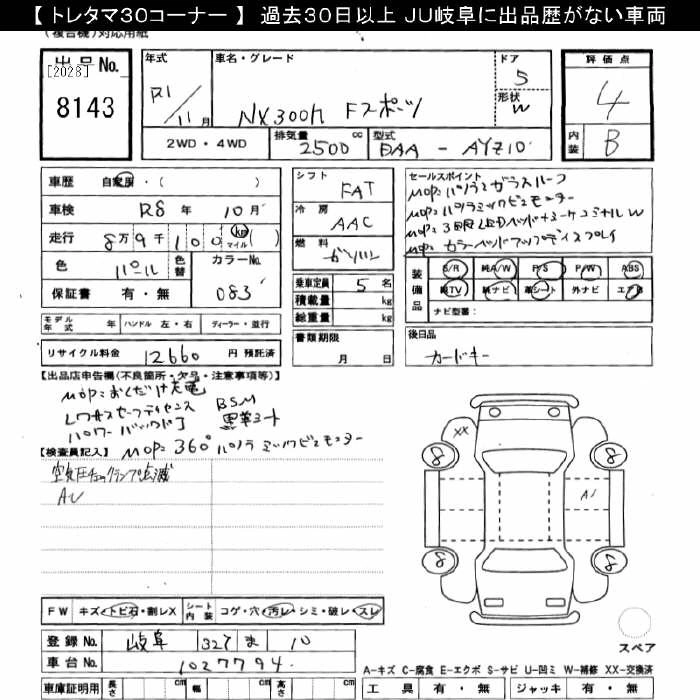 【 トレタマ30コーナー 】 過去30日以上 JU岐阜に出品歴がない車両
(複合機)対応用紙
出品No. [2028] 8143
年式 R1/11月
車名・グレード NX300h Fスポーツ
ドア 5
形状 W
評価点 4
内装 B
2WD・4WD
排気量 2500 cc
型式 DAA - AYZ10
車歴 自家用・( )
車検 R8年 10月
走行 8万9千100 km マイル ( )
色 パール 色替
カラーNo. 083
保証書 有・無
シフト FAT
冷房 AAC
燃料 ガソリン
乗車定員 5 名
積載量 kg
総重量 kg
セールスポイント
MOP=パノラミックビューモニター
MOP=カラーヘッドアップディスプレイ
装備品 S/R 純A/W P/S P/W ABS
純TV 純ナビ 革シート 外ナビ エアB
ナビ型番:
モデル年式 年 ハンドル 左・右 ディーラー・並行
リサイクル料金 12660 円 預託済
書類期限 月 日
後日品
カードキー
【出品店申告欄(不良箇所・欠品・注意事項等)】
MOP=おくだけ充電
BSM
パワーバックドア 黒革シート
【検査員記入】 MOP=360°パノラミックビューモニター
空気圧チェックランプ点滅
AU
XX
8 8
A1
8 8
FW キズ・トビ石・割レX シート内装 コゲ・穴・汚レ・シミ・破レ・スレ
登録No. 岐阜 327 ま 10
車台No. 1027794
スペア
A-キズ C-腐食 E-エクボ S-サビ U-凹ミ W-補修 XX-交換済
車庫証明用 長さ cm 幅 cm 高さ cm
工具 有・無 ジャッキ 有・無